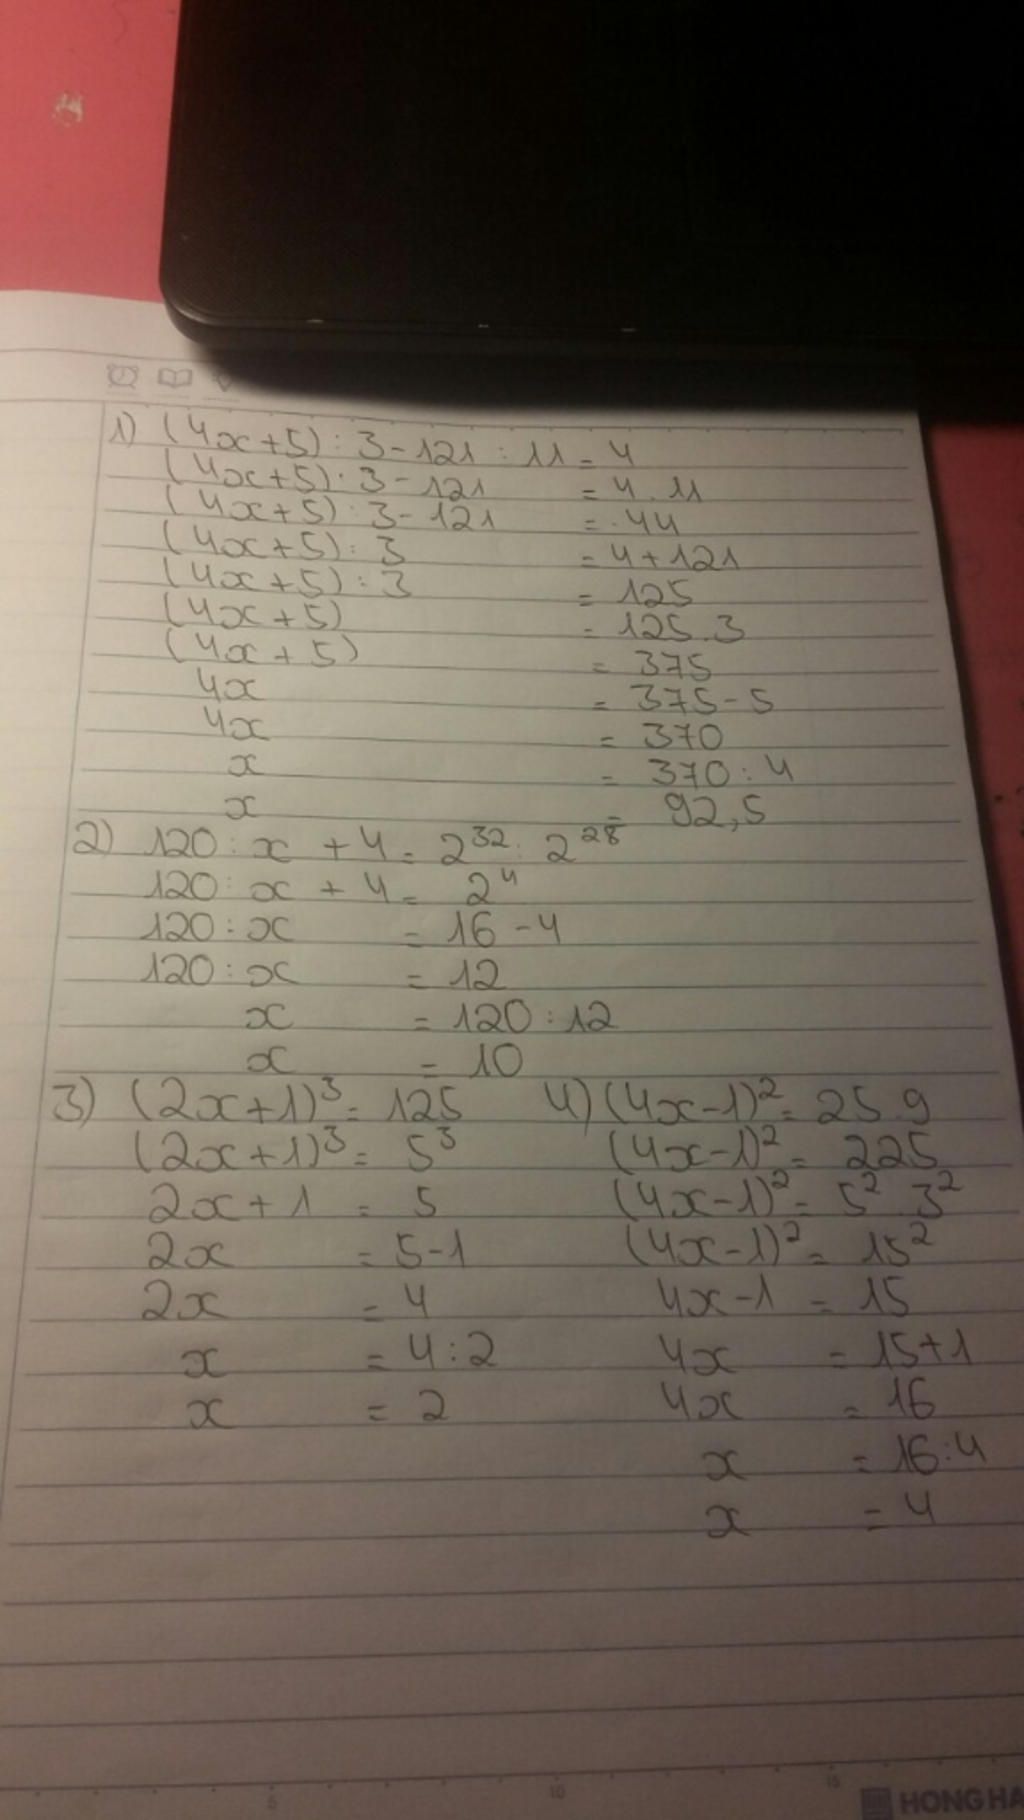 1) (4x+5) : 3 - 121 : 11 = 4
(4x+5) : 3 - 121 = 4 . 11
(4x+5) : 3 - 121 = 44
(4x+5) : 3 = 4+121
(4x+5) : 3 = 125
(4x+5) = 125.3
(4x+5) = 375
4x = 375-5
4x = 370
x = 370:4
x = 92,5
2) 120 : x + 4 = 2³² : 2²⁸
120 : x + 4 = 2⁴
120 : x = 16 - 4
120 : x = 12
x = 120 : 12
x = 10
3) (2x+1)³ = 125
(2x+1)³ = 5³
2x+1 = 5
2x = 5-1
2x = 4
x = 4:2
x = 2
4) (4x-1)² = 25.9
(4x-1)² = 225
(4x-1)² = 5² . 3²
(4x-1)² = 15²
4x-1 = 15
4x = 15+1
4x = 16
x = 16:4
x = 4
5 10 15
HONG HA